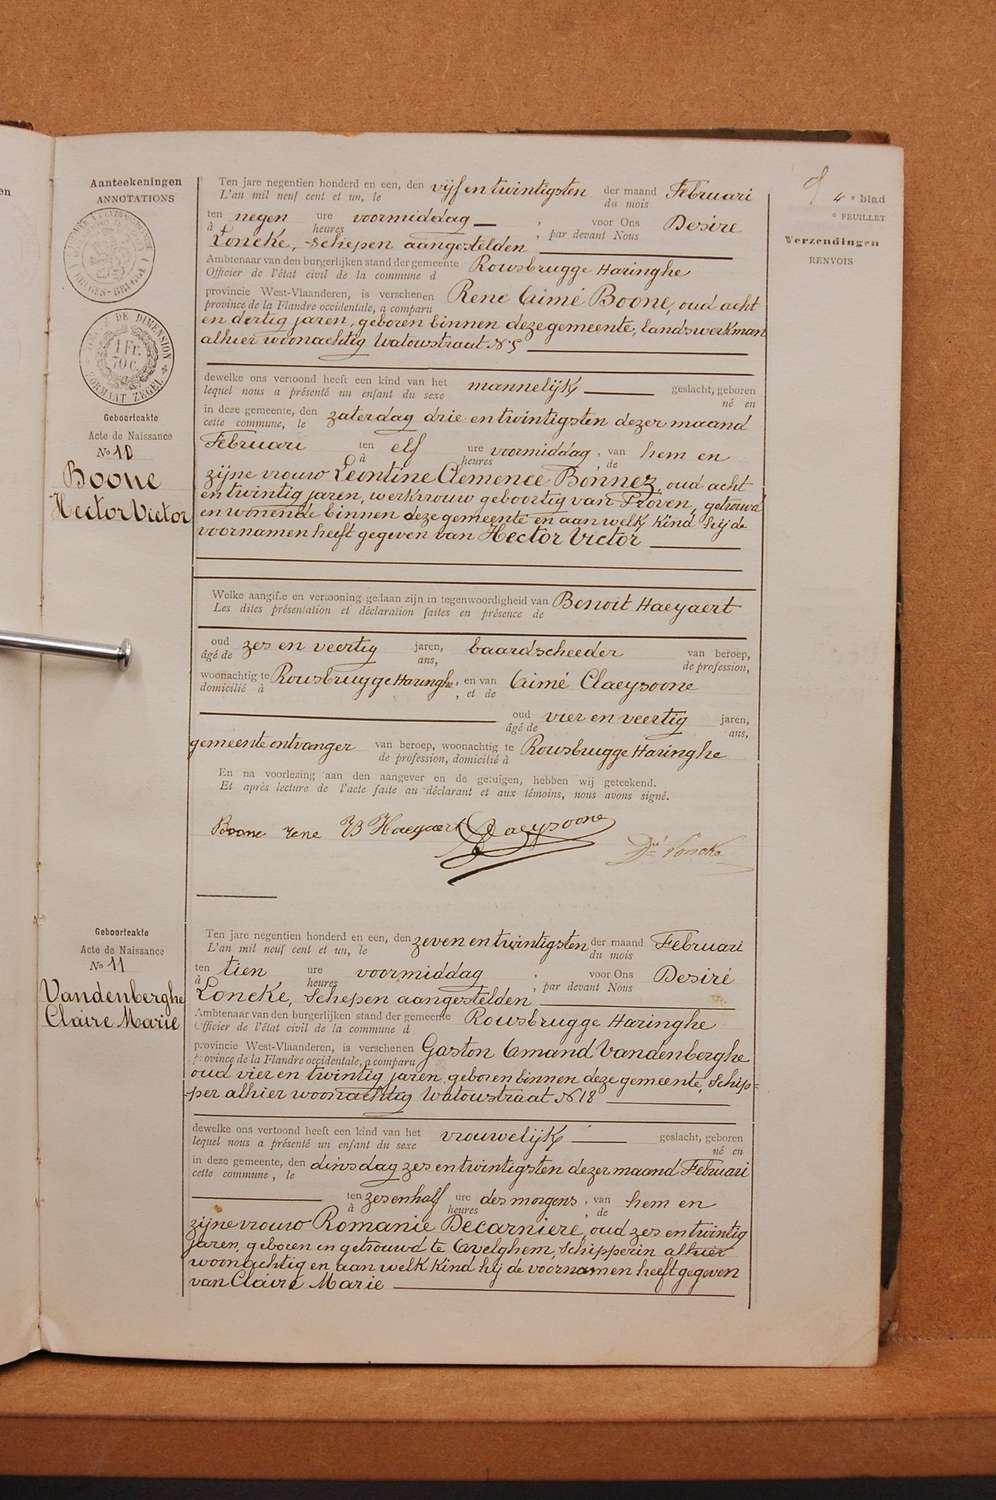 Aanteekeningen
ANNOTATIONS
TIMBRE DE DIMENSION
1 Fr.
70 C.
FORMAAT ZEGEL
Geboorteakte
Acte de Naissance
No 10
Boone
Hector Victor
4e blad
e FEUILLET
Verzendingen
RENVOIS
Ten jare negentien honderd en een, den vijf en twintigsten der maand Februari
L'an mil neuf cent et un, le du mois
ten negen ure voormiddag, voor Ons Desiré
à heures , par devant Nous
Loncke, schepen aangestelden
Ambtenaar van den burgerlijken stand der gemeente Rousbrugge Haringhe
Officier de l'état civil de la commune d
provincie West-Vlaanderen, is verschenen René Aimé Boone, oud acht
province de la Flandre occidentale, a comparu
en dertig jaren, geboren binnen deze gemeente, landswerkman
alhier woonachtig Watowstraat No 5
dewelke ons vertoond heeft een kind van het mannelijk geslacht, geboren
lequel nous a présenté un enfant du sexe né en
in deze gemeente, den zaterdag drie en twintigsten dezer maand
cette commune, le
Februari ten elf ure voormiddag, van hem en
à heures , de
zijne vrouw Leontine Clemence Bonnez, oud acht
en twintig jaren, werkvrouw geboortig van Proven, getrouwd
en wonende binnen deze gemeente en aan welk kind hij de
voornamen heeft gegeven van Hector Victor
Welke aangifte en vertooning gedaan zijn in tegenwoordigheid van Benoit Haeyaert
Les dites présentation et déclaration faites en présence de
oud zes en veertig jaren, baardscheeder van beroep,
âgé de ans, de profession,
woonachtig te Rousbrugge Haringhe, en van Aimé Claeysoone
domicilié à , et de
oud vier en veertig jaren,
âgé de ans,
gemeente ontvanger van beroep, woonachtig te Rousbrugge Haringhe
de profession, domicilié à
En na voorlezing aan den aangever en de getuigen, hebben wij geteekend.
Et après lecture de l'acte faite au déclarant et aux témoins, nous avons signé.
Boone rene B Haeyaert Claeysoone
Dré Loncke
Geboorteakte
Acte de Naissance
No 11
Vandenberghe
Claire Marie
Ten jare negentien honderd en een, den zeven en twintigsten der maand Februari
L'an mil neuf cent et un, le du mois
ten tien ure voormiddag, voor Ons Desiré
à heures , par devant Nous
Loncke, schepen aangestelden
Ambtenaar van den burgerlijken stand der gemeente Rousbrugge Haringhe
Officier de l'état civil de la commune d
provincie West-Vlaanderen, is verschenen Gaston Amand Vandenberghe
province de la Flandre occidentale, a comparu
oud vier en twintig jaren, geboren binnen deze gemeente, schip=
per alhier woonachtig Watowstraat No 18
dewelke ons vertoond heeft een kind van het vrouwelijk geslacht, geboren
lequel nous a présenté un enfant du sexe né en
in deze gemeente, den dinsdag zes en twintigsten dezer maand Februari
cette commune, le
ten zes en half ure des morgens, van hem en
à heures , de
zijne vrouw Romanie Decarniere, oud zes en twintig
jaren, geboren en getrouwd te Avelghem, schipperin alhier
woonachtig en aan welk kind hij de voornamen heeft gegeven
van Claire Marie